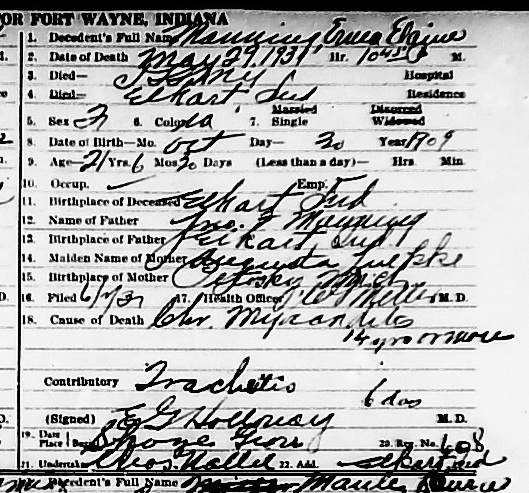 OR FORT WAYNE, INDIANA
1. Decedent's Full Name Manning Erma Elaine
2. Date of Death May 29, 1931 Hr. 1045 P M.
3. Died— Hospital
4. Died— Elkart Ind Residence
5. Sex F 6. Color 7. Married Single Divorced Widowed
8. Date of Birth—Mo. Oct Day— 30 Year 1909
9. Age— 21 Yrs. 6 Mos. 30 Days (Less than a day)— Hrs. Min.
10. Occup. Emp.
11. Birthplace of Deceased Elkart Ind
12. Name of Father Jno. F Manning
13. Birthplace of Father Elkart Ind
14. Maiden Name of Mother Augusta
15. Birthplace of Mother Petosky Mich
16. Filed 6/1/31 17. Health Officer Miller M. D.
18. Cause of Death Chr. Myocarditis
14 yrs or more
Contributory Trachetis
6 das
(Signed) E G Holloway M. D.
19. Date Place Burial Grove 20. Reg. No. 608
21. Undertaker Chas. 22. Add. Elkart Ind
Decedent's Full Name